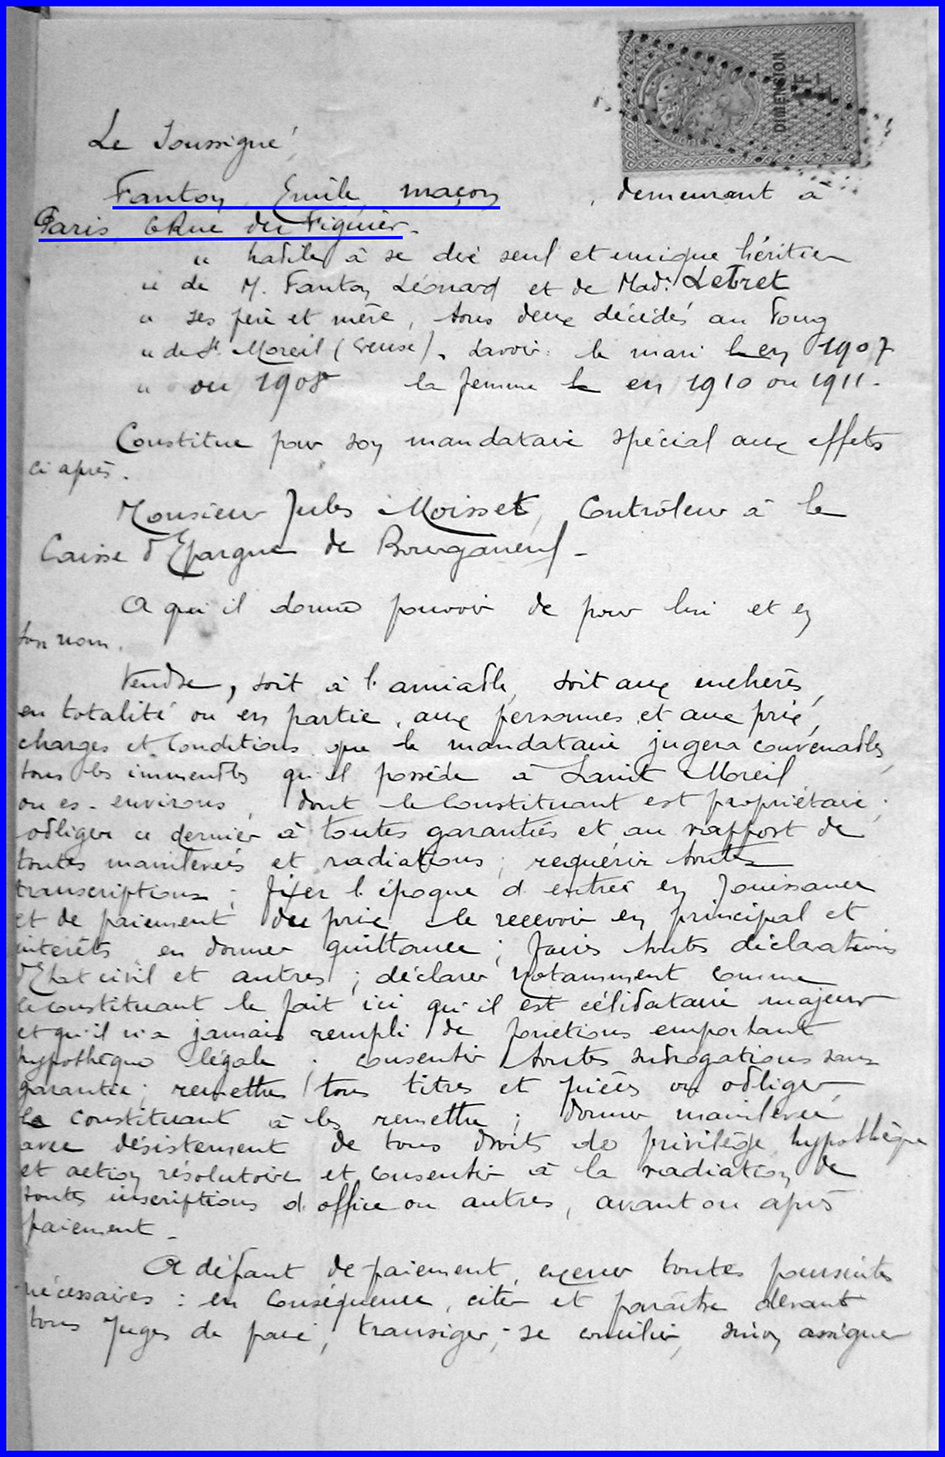 DIMENSION
1F
Le Soussigné
Fanton Emile, maçon, demeurant à
Paris, 6 Rue du Figuier.
" habile à se dire seul et unique héritier
" de M. Fanton Léonard et de Mad: Lebret
" ses père et mère, tous deux décédés au
" de St. Moreil (Creuse), savoir: le mari le en 1907
" ou 1908 la femme le en 1910 ou 1911.
Constitue pour son mandataire spécial aux effets
ci après.
Monsieur Jules Moisset, Contrôleur à la
Caisse d'Epargne de Bourganeuf -
A qui il donne pouvoir de pour lui et en
son nom.
Vendre, soit à l'amiable, soit aux enchères,
en totalité ou en partie, aux personnes et aux prix,
charges et conditions que le mandataire jugera convenables,
tous les immeubles qu'il possède à Saint Moreil
ou es-environs, dont le Constituant est propriétaire;
obliger ce dernier à toutes garanties et au rapport de
toutes mainlevées et radiations; requérir toutes
transcriptions; fixer l'époque d'entrée en jouissance
et de paiement du prix le recevoir en principal et
intérêts en donner quittance; faire toutes déclarations
d'Etat civil et autres; déclarer notamment comme
le constituant le fait ici qu'il est célibataire majeur
et qu'il n'a jamais rempli de fonctions emportant
hypothèque légale; consentir toutes subrogations sans
garantie; remettre tous titres et pièces ou obliger
le constituant à les remettre; donner mainlevée
avec désistement de tous droits de privilège, hypothèque
et action résolutoire et consentir à la radiation de
toutes inscriptions d'office ou autres, avant ou après
paiement -
A défaut de paiement, exercer toutes poursuites
nécessaires: en conséquence, citer et paraître devant
tous Juges de paix, transiger, se concilier, sinon assigner